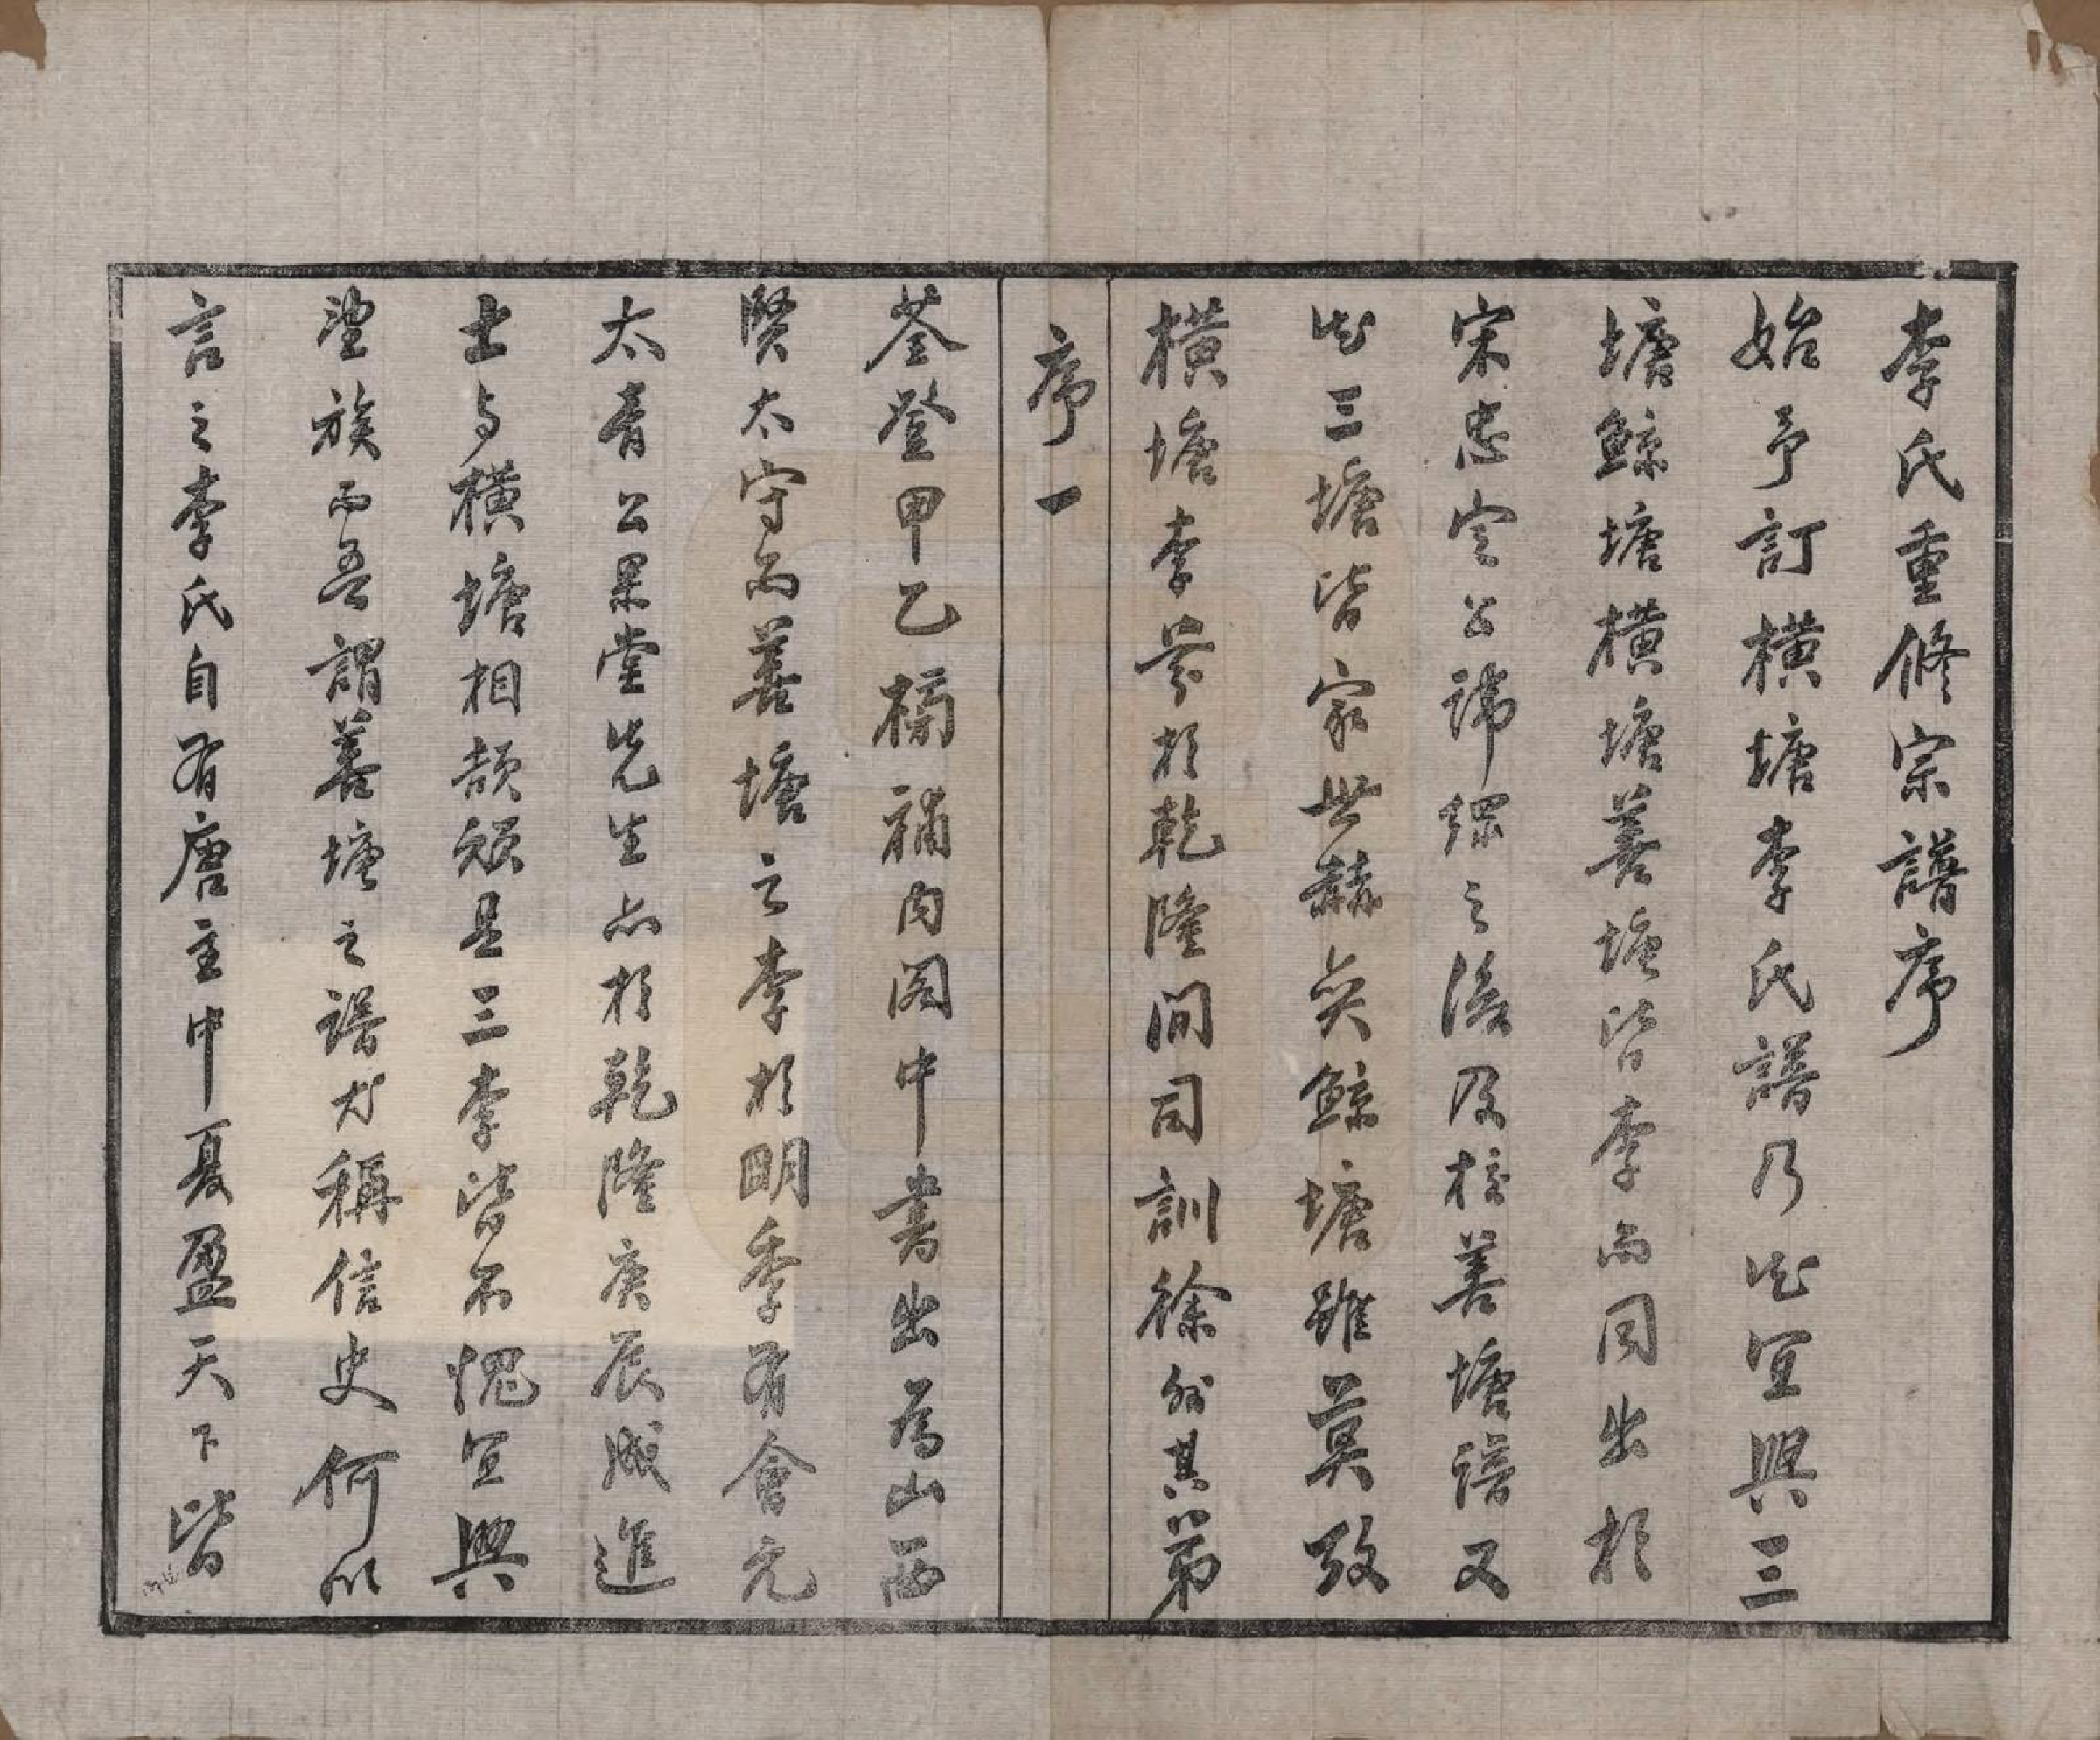 李氏重修宗譜序
始予訂橫塘李氏譜乃知宜興三
塘鯨塘橫塘善塘皆李而同出於
宋忠定公諱綱之後及校善塘譜又
知三塘皆家世赫奕鯨塘雖莫攷
橫塘李芬於乾隆間司訓徐州其弟
序一
荃登甲乙榜補內閣中書出爲山西
賢太守而善塘之李於明季有會元
太青公果堂先生亦於乾隆庚辰成進
士與橫塘相頡頏是三李皆不愧宜興
望族而吾謂善塘之譜尤稱信史何以
言之李氏自有唐主中夏盈天下皆